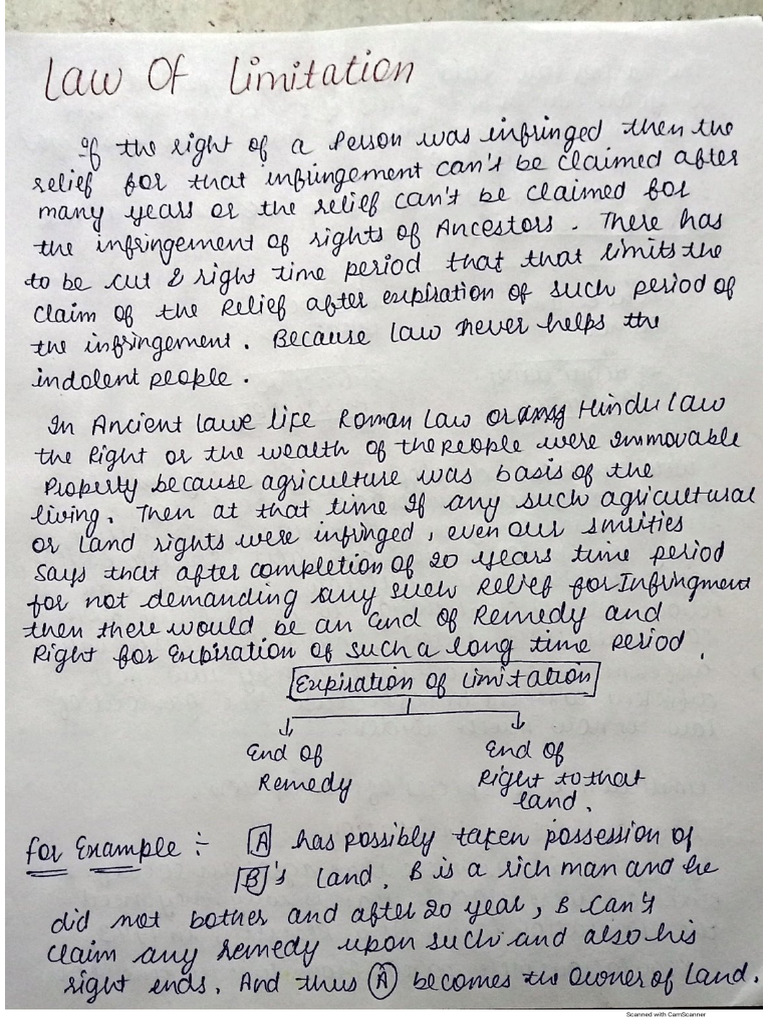 Law Of Limitation
If the right of a Person was infringed then the
relief for that infringement can't be claimed after
many years or the relief can't be claimed for
the infringement of rights of Ancestors. There has
to be cut & right time period that that limits the
Claim of the Relief after expiration of such period of
the infringement. Because law never helps the
indolent people.
In Ancient lawe life Roman Law or Hindu Law
the Right or the wealth of the People were Immovable
Property because agriculture was basis of the
living. Then at that time If any such agricultural
or Land rights were infringed, even our smrities
says that after completion of 20 years time period
for not demanding any such Relief for Infringment
then there would be an End of Remedy and
Right for Expiration of such a long time period.
Expiration of Limitation
End Of Remedy
End Of Right to that land.
for Example :- A has possibly taken possession of
B's Land. B is a rich man and he
did not bother and after 20 year, B Can't
Claim any remedy upon such and also his
right ends. And thus A becomes the Owner of Land.
Scanned with CamScanner